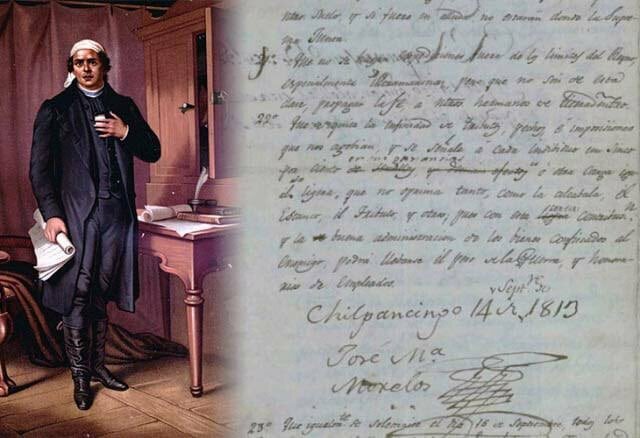 ntro Suelo, y si fuere en aiuda no estarán donde la Supre
ma Junta.
21º Que no se hagan expediciones fuera de los limites del Reyno,
especialmente Ultramarinas, pero que no son de esta
clase propagar la fé a ntros hermanos de Tierradentro.
22º Que se quite la infinidad de tributos, pechos é imposiciones
que nos agobian, y se señale á cada individuo un cinco
en sus ganancias
por ciento ú otra carga igual
ligera, que no oprima tanto, como la alcabala, el
Estanco, el Tributo, y otros, pues con esta
y la buena administracion de los bienes confiscados al
Enemigo, podrá llevarse el peso de la Guerra, y honora-
rios de Empleados.
Chilpancingo 14 de Septre de 1813
José Ma
Morelos
23º Que igualmte se solemnice el dia 16 de Septiembre, todos los